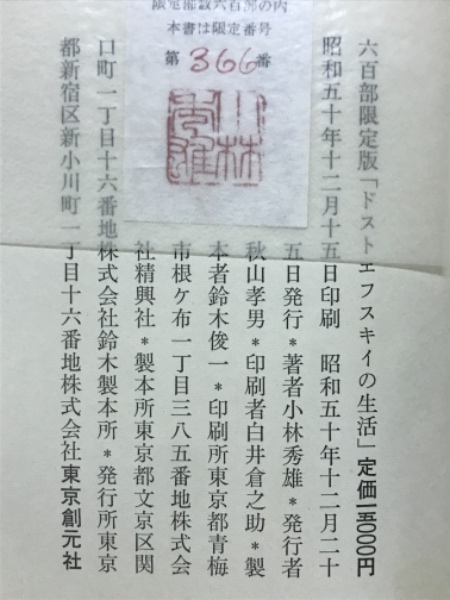 限定部数六百部の内
本書は限定番号
第366番
小林秀雄
六百部限定版「ドストエフスキイの生活」定価一五〇〇〇円
昭和五十年十二月十五日印刷 昭和五十年十二月二十
五日発行*著者小林秀雄*発行者
秋山孝男*印刷者白井倉之助*製
本者鈴木俊一*印刷所東京都青梅
市根ケ布一丁目三八五番地株式会
社精興社*製本所東京都文京区関
口町一丁目十六番地株式会社鈴木製本所*発行所東京
都新宿区新小川町一丁目十六番地株式会社東京創元社